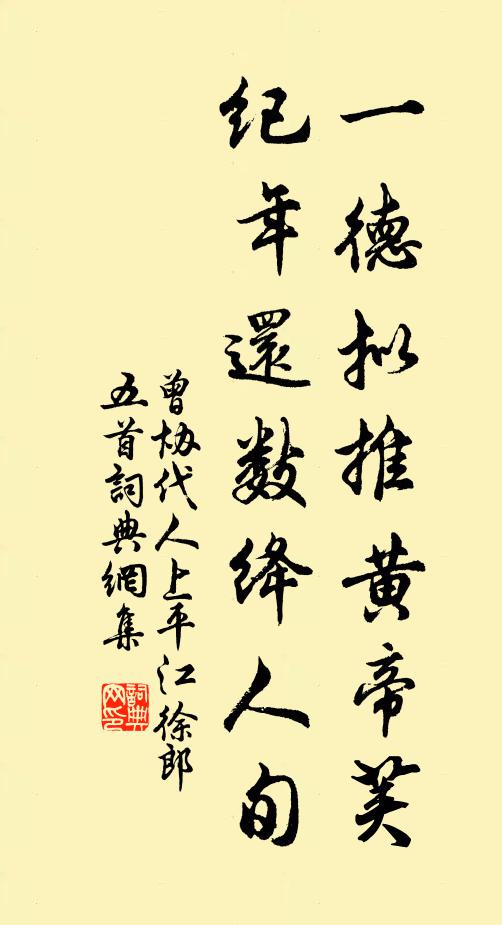 一德拟推黄帝荚
纪年還数绛人旬
曾协代人上平江徐郎
五首詞典網集
詞典
网印